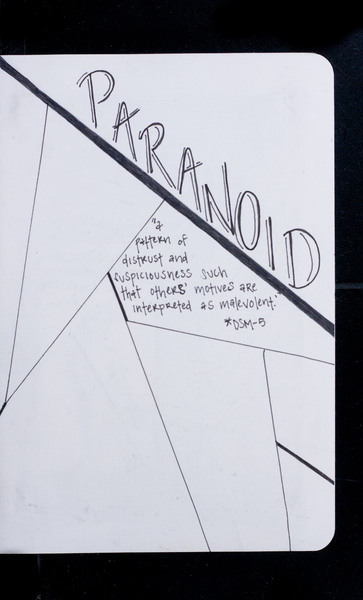 PARANOID
"a
pattern of
distrust and
suspiciousness such
that others' motives are
interpreted as malevolent."
*DSM-5